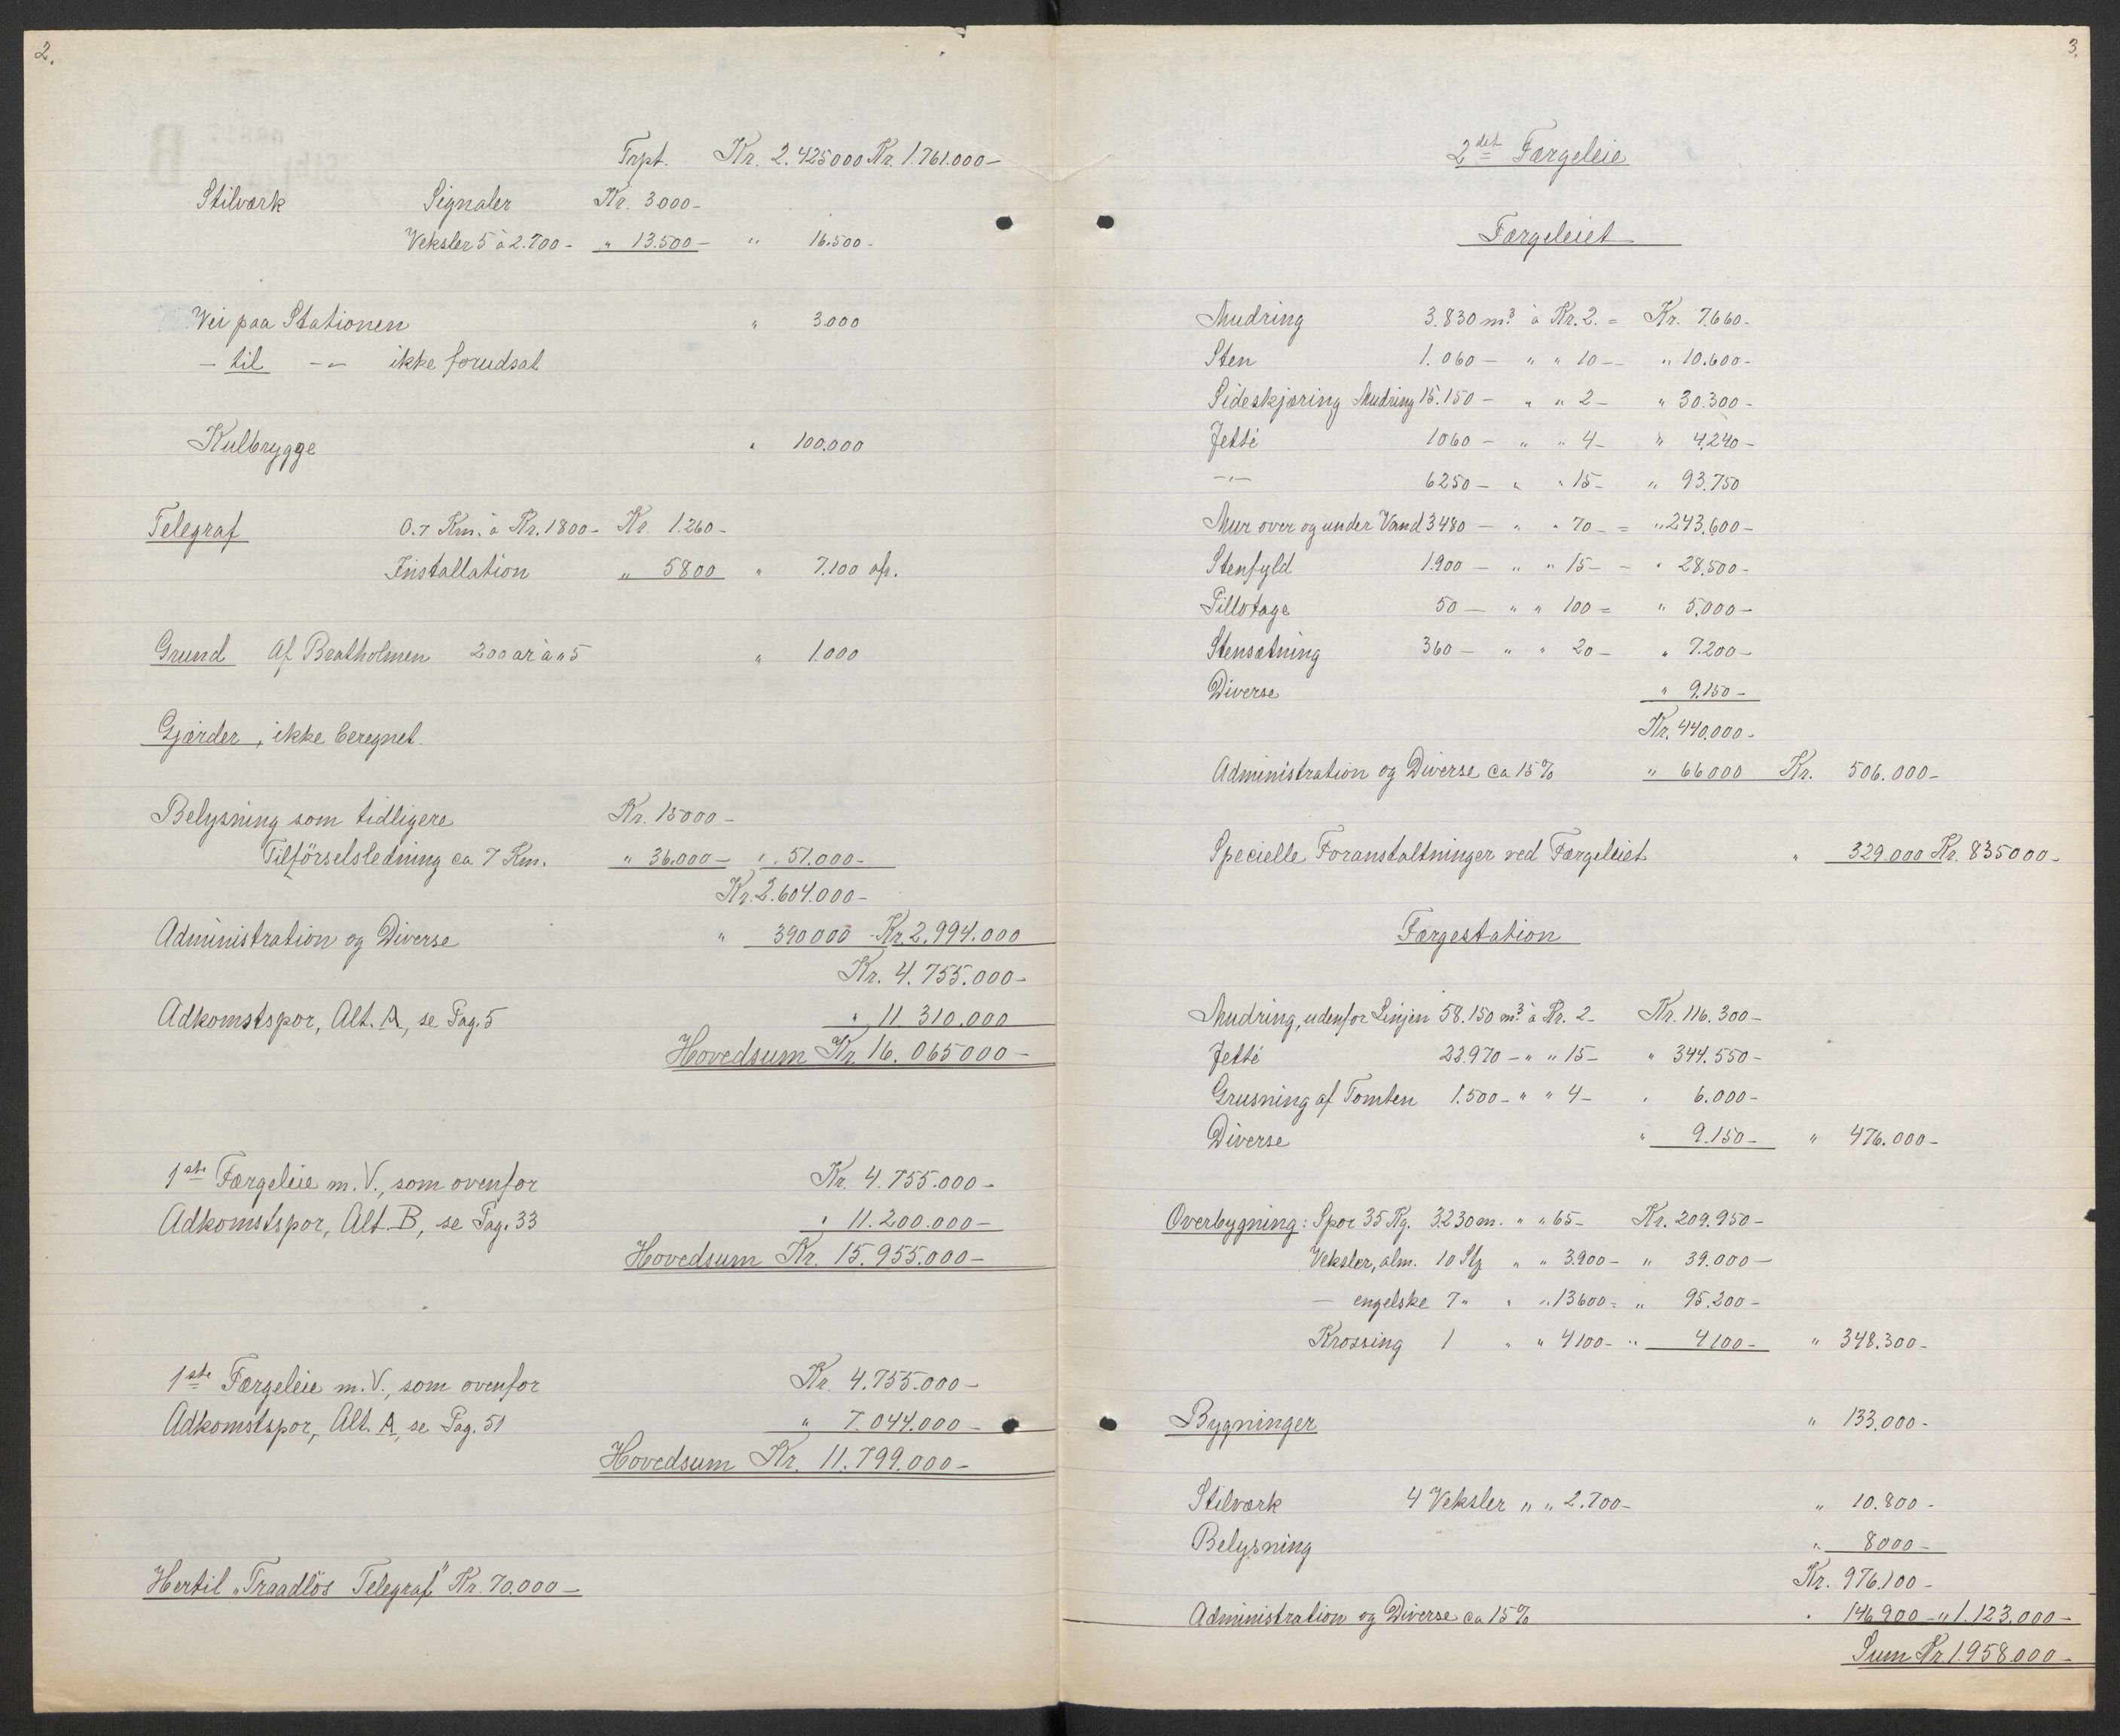 2.
Trpt. Kr. 2.425000 Kr. 1.761.000-
Stilværk Signaler Kr. 3000-
Veksler 5 à 2.700- " 13.500- " 16.500-
Vei paa Stationen " 3.000
- til -"- ikke forudsat
Kulbrygge " 100.000
Telegraf 0.7 Km. à Kr. 1800- Kr. 1.260-
Installation " 5800 " 7.100 afr.
Grund Af Bratholmen 200 ar à " 5 " 1.000
Gjærder, ikke beregnet.
Belysning som tidligere Kr. 15000-
Tilförselsledning ca 7 Km. " 36.000- " 51.000-
Kr. 2.604.000-
Administration og Diverse " 390000 - Kr. 2.994.000
Kr. 4.755.000-
Adkomstspor, Alt. A, se Pag. 5 " 11.310.000
Hovedsum Kr. 16.065000-
1ste Færgeleie m.V., som ovenfor Kr. 4.755.000-
Adkomstspor, Alt. B, se Pag. 33 " 11.200.000-
Hovedsum Kr. 15.955.000-
1ste Færgeleie m.V., som ovenfor Kr. 4.755.000-
Adkomstspor, Alt. A, se Pag. 51 " 7.044.000-
Hovedsum Kr. 11.799.000-
Hertil "Traadlös Telegraf" Kr. 70.000-
3.
2det Færgeleie
Færgeleiet
Mudring 3.830 m.3 à Kr. 2. = Kr. 7.660-
Sten 1.060- " " 10- " 10.600-
Sideskjæring Mudring 15.150- " " 2- " 30.300-
Jetté 1060- " " 4- " 4.240-
-"- 6250- " " 15- " 93.750
Mur over og under Vand 3480- " " 70- = " 243.600-
Stenfyld 1.900- " " 15- - " 28.500-
Pillotage 50- " " 100= " 5.000-
Stensætning 360- " " 20- " 7.200-
Diverse " 9.150-
Kr. 440.000-
Administration og Diverse ca 15% " 66000 Kr. 506.000-
Specielle Foranstaltninger ved Færgeleiet " 329.000 Kr. 835000-
Færgestation
Mudring, udenfor Linjen 58.150 m.3 à Kr. 2- Kr. 116.300-
Jetté 22.970- " " 15- " 344.550-
Grusning af Tomten 1.500- " " 4- " 6.000-
Diverse " 9.150- " 476.000-
Overbygning: Spor 35 Kg. 3230 m. " " 65- Kr. 209.950-
Veksler, alm. 10 Stk " " 3.900- " 39.000-
- engelske 7 " " " 13600= " 95.200-
Krossing 1 " " 4100- " 4100- " 348.300-
Bygninger " 133.000-
Stilværk 4 Veksler " " 2.700- " 10.800-
Belysning " 8000-
Kr. 976.100-
Administration og Diverse ca 15% " 146.900- " 1.123.000-
Sum Kr. 1.958.000-